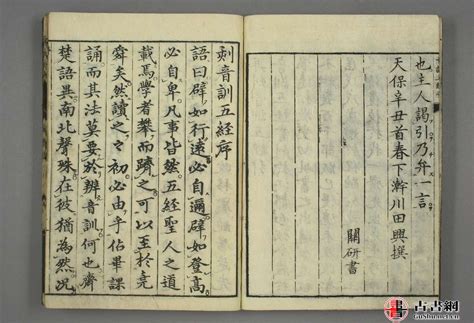 也主人謁引乃弁一言
天保辛丑首春下澣川田興撰
關研書
刻音訓五經序
語曰辟如行遠必自邇辟如登高
必自卑凡事皆然五經聖人之道
載焉學者攀而躋之可以至於堯
舜矣然讀之之初必由手佔畢課
誦而其法莫要於辨音訓何也齊
楚語異南北聲殊在彼猶為然況
古書網
GuShu.net.cn